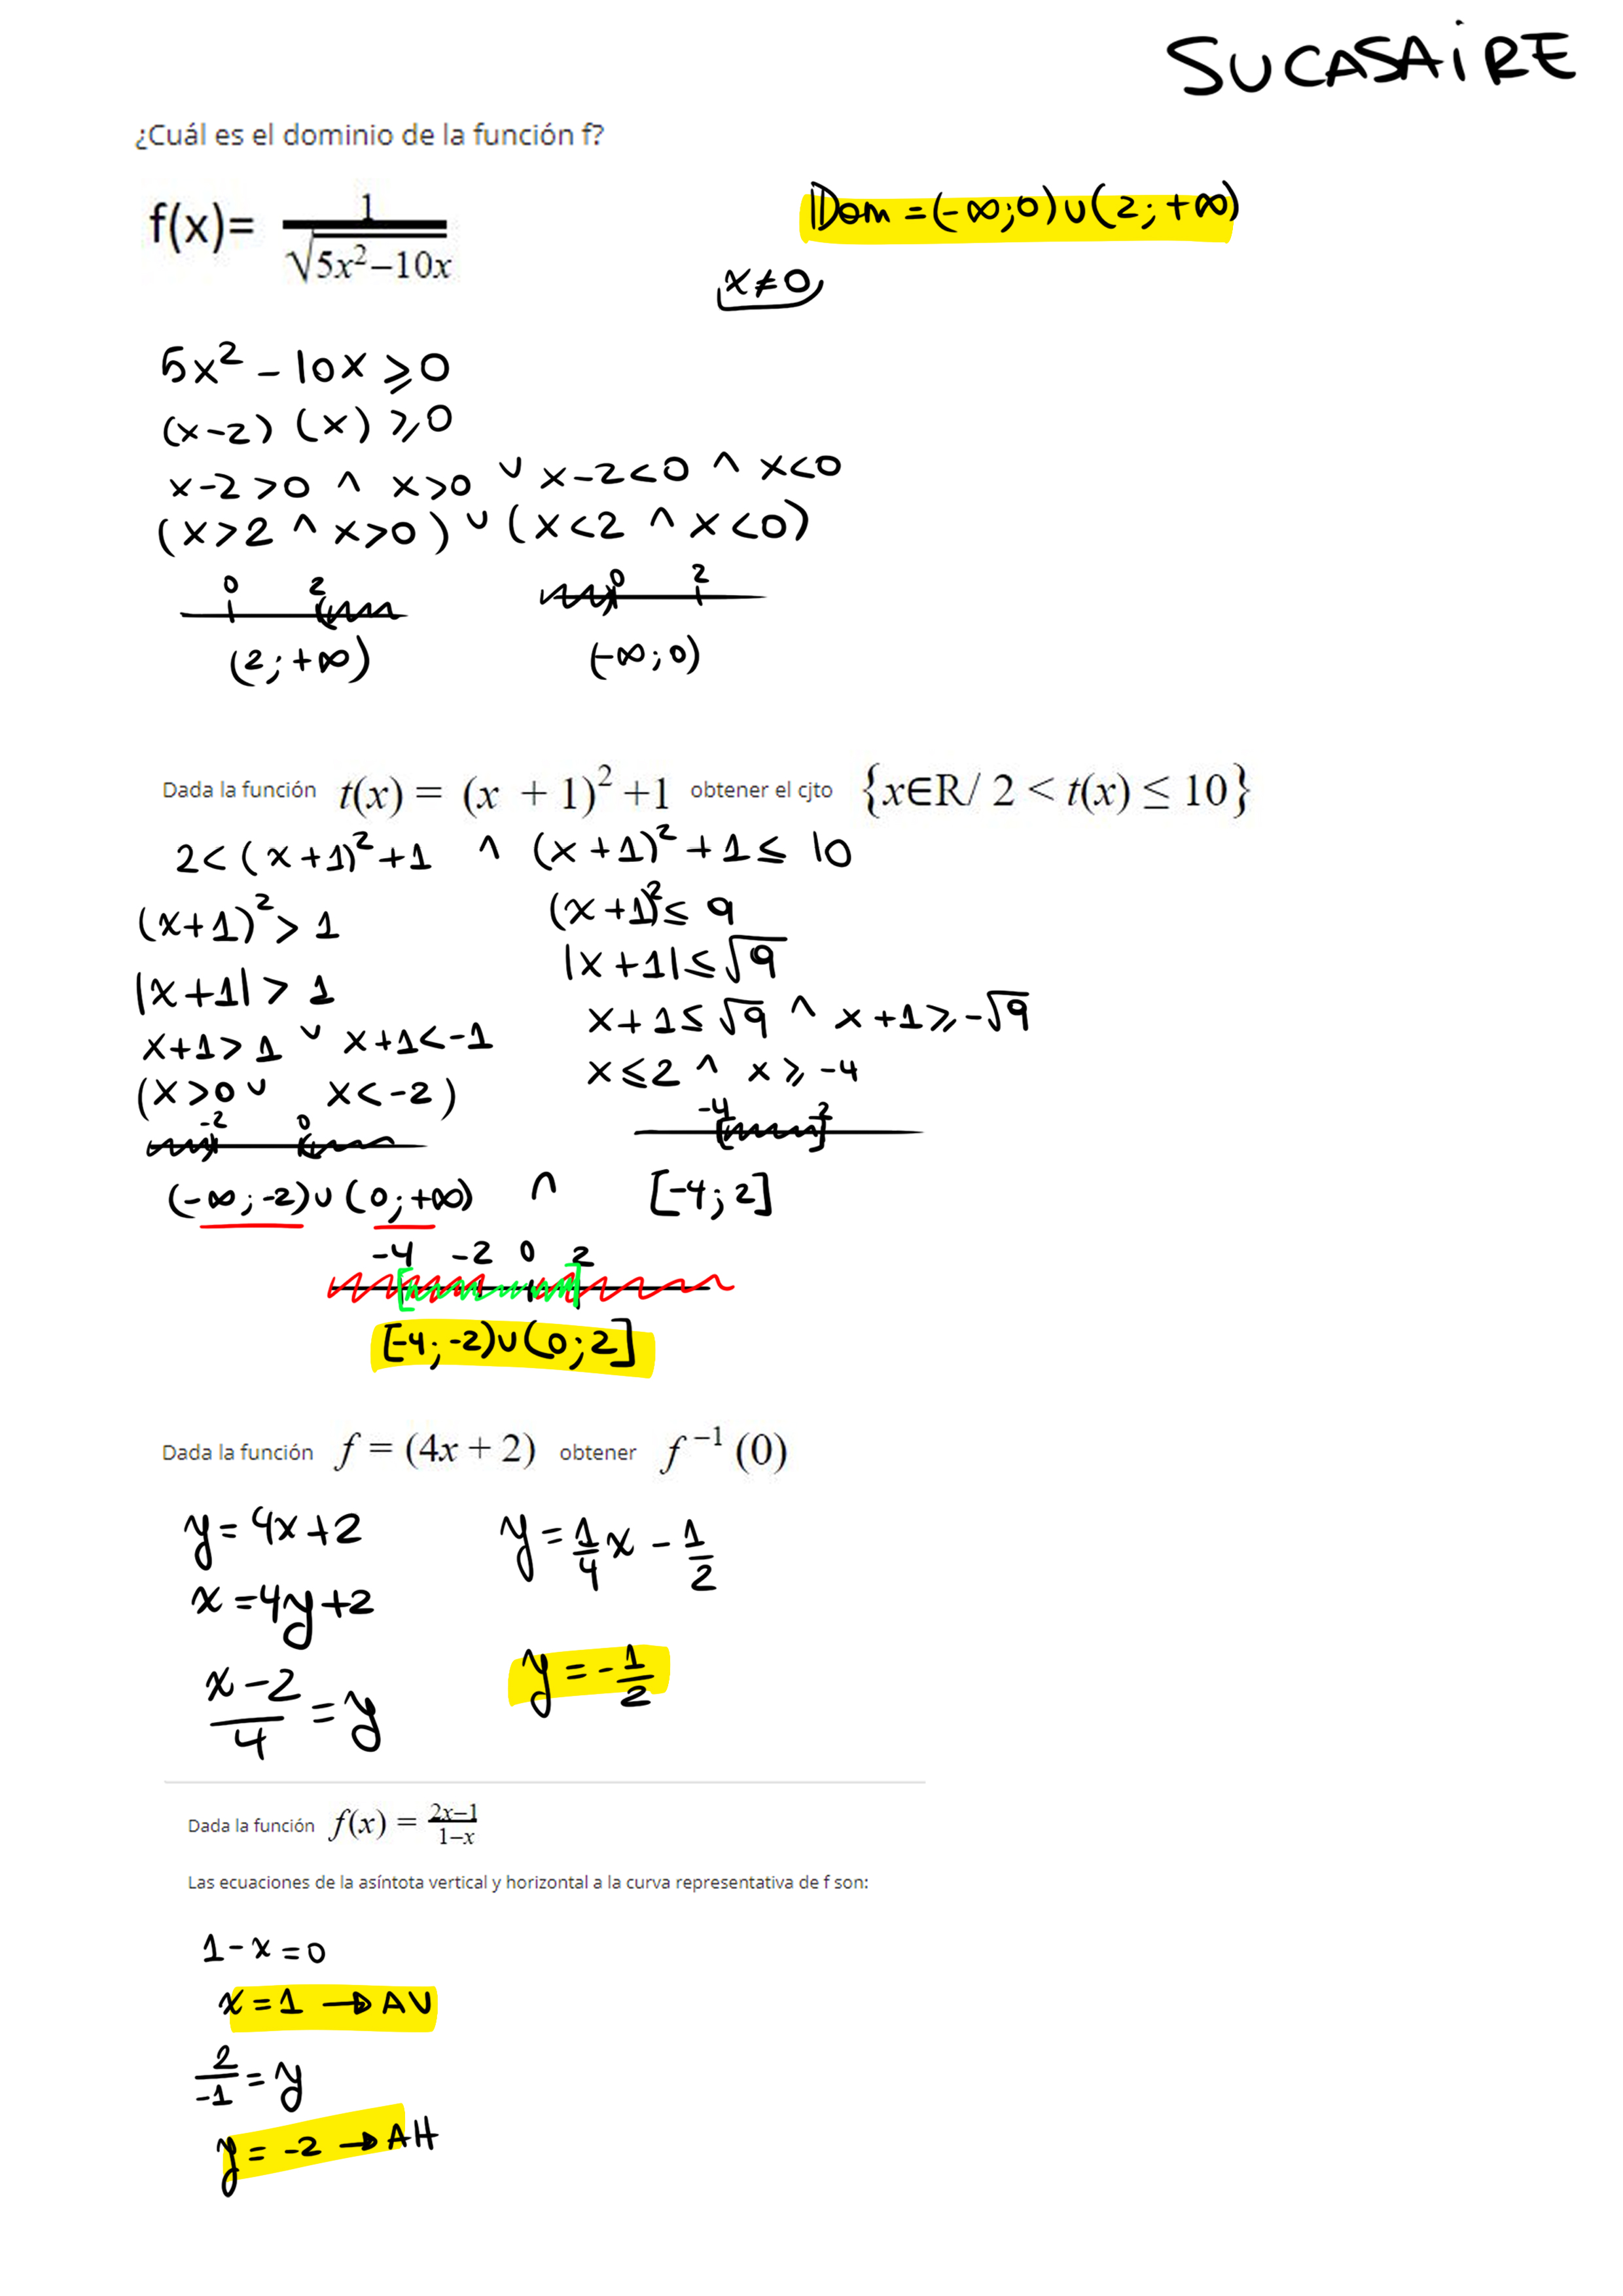 SUCASAiRE
¿Cuál es el dominio de la función f?
f(x)= 1/√(5x²–10x)
Dom = (-∞;0)∪(2;+∞)
x≠0
5x² - 10x ≥0
(x-2) (x) ≥0
x-2>0 ^ x>0 ∨ x-2<0 ^ x<0
(x>2 ^ x>0) ∪ (x<2 ^ x<0)
0 2 0 2
(2;+∞) (-∞;0)
Dada la función t(x) = (x + 1)² +1 obtener el cjto {x∈R/ 2 < t(x) ≤ 10}
2<(x+1)²+1 ^ (x+1)²+1≤ 10
(x+1)²> 1 (x+1)²≤ 9
|x+1| > 1 |x+1|≤√9
x+1>1 ∨ x+1<-1 x+1≤√9 ^ x+1≥-√9
(x>0 ∪ x<-2) x≤2 ^ x≥-4
-2 0 -4 2
(-∞;-2)∪(0;+∞) ∩ [-4;2]
-4 -2 0 2
[-4;-2)∪(0;2]
Dada la función f = (4x + 2) obtener f⁻¹(0)
y=4x+2 y=1/4x - 1/2
x=4y+2
(x-2)/4=y y=-1/2
Dada la función f(x) = (2x–1)/(1–x)
Las ecuaciones de la asíntota vertical y horizontal a la curva representativa de f son:
1-x=0
x=1 → AV
2/-1=y
y=-2 → AH